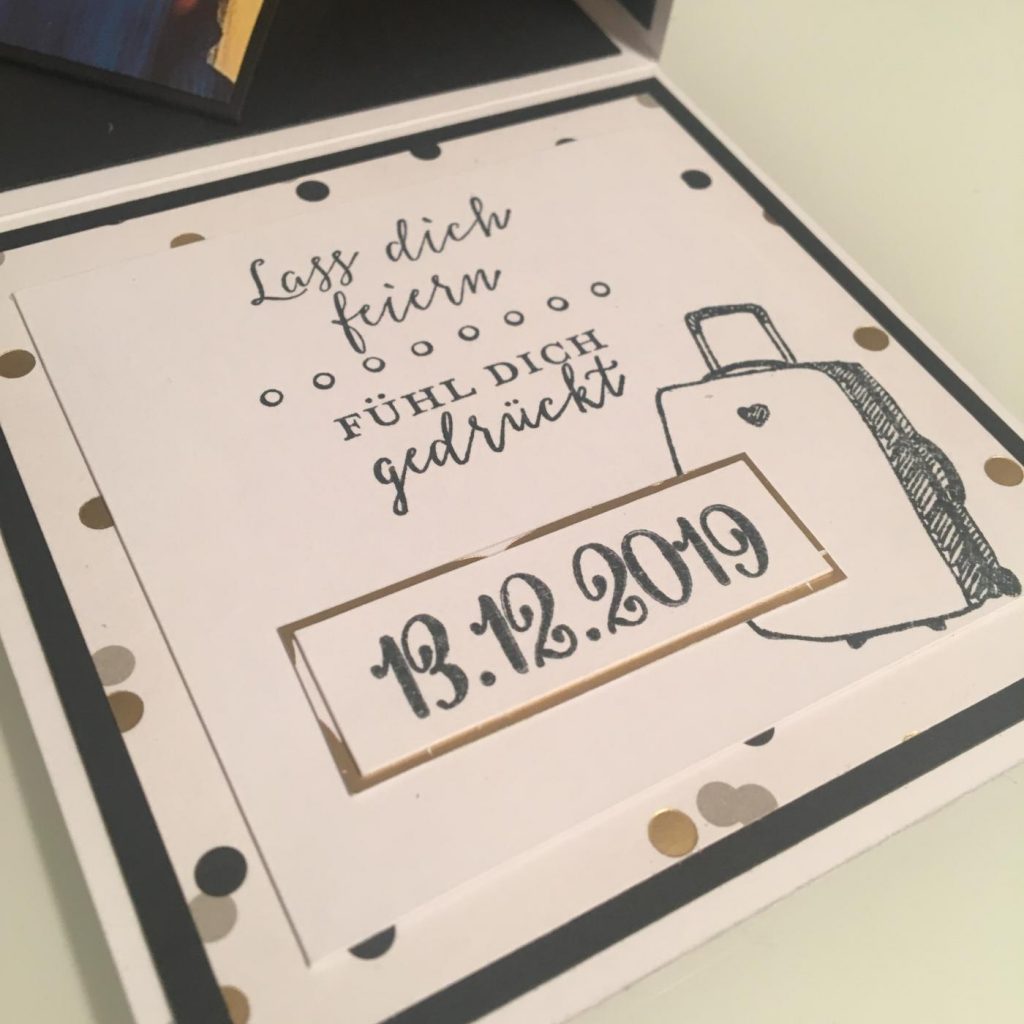 Lass dich
feiern
FÜHL DICH
gedrückt
13.12.2019